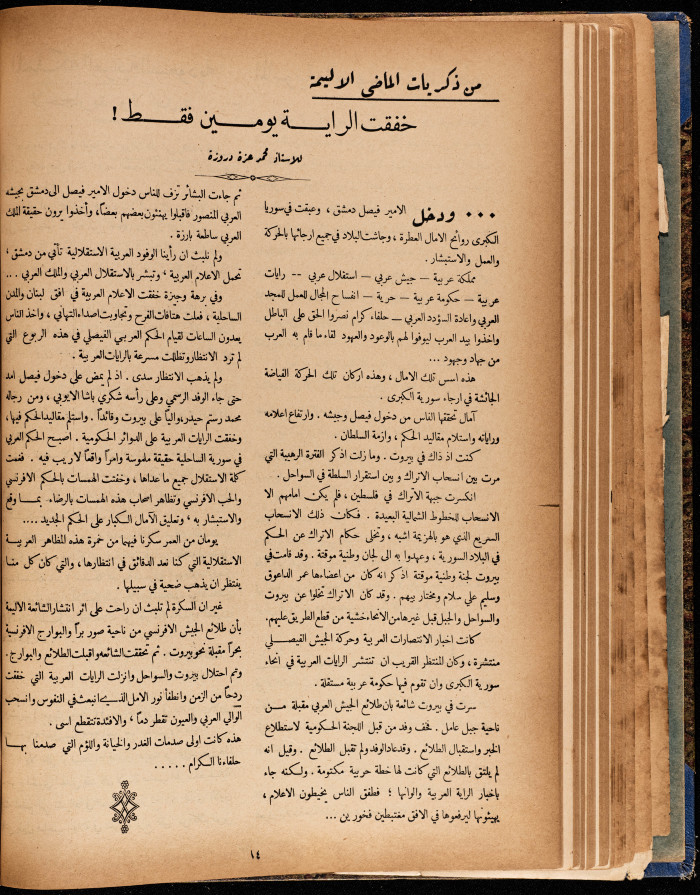 من ذكريات الماضي الاليمة
خفقت الراية يومين فقط !
للاستاذ محمد عزة دروزة
٠٠٠ ودخل الامير فيصل دمشق ، وعبقت في سوريا
الكبرى روائح الامال العطرة ، وجاشت البلاد في جميع ارجائها بالحركة
والعمل والاستبشار .
مملكة عربية – جيش عربي – استقلال عربي -- رايات
عربية – حكومة عربية – حرية – انفساح المجال للعمل للمجد
العربي واعادة السؤدد العربي – حلفاء كرام نصروا الحق على الباطل
واخذوا بيد العرب ليوفوا لهم بالوعود والعهود لقاء ما قام به العرب
من جهاد وجهود ...
هذه اسس تلك الامال ، وهذه اركان تلك الحركة الفياضة
الجائشة في ارجاء سورية الكبرى .
آمال تحققها الناس من دخول فيصل وجيشه . وارتفاع اعلامه
وراياته واستلام مقاليد الحكم ، وازمة السلطان .
كنت اذ ذاك في بيروت . وما زلت اذكر الفترة الرهيبة التي
مرت بين انسحاب الاتراك و بين استقرار السلطة في السواحل .
انكسرت جبهة الأتراك في فلسطين ، فلم يكن امامهم الا
الانسحاب للخطوط الشمالية البعيدة . فكان ذلك الانسحاب
السريع الذي هو بالهزيمة اشبه ، وتخلى حكام الاتراك عن الحكم
في البلاد السورية ، وعهدوا به الى لجان وطنية موقتة . وقد قامت في
بيروت لجنة وطنية موقتة اذكر انه كان من اعضاءها عمر الداعوق
وسليم علي سلام ومختار بيهم . وقد كان الاتراك تخلوا عن بيروت
والسواحل والجبل قبل غيرها من الانحاء خشية من قطع الطريق عليهم.
كانت اخبار الانتصارات العربية وحركة الجيش الفيصلي
منتشرة ، وكان المنتظر القريب ان تنتشر الرايات العربية في انحاء
سورية الكبرى وان تقوم فيها حكومة عربية مستقلة .
سرت في بيروت شائعة بان طلائع الجيش العربي مقبلة من
ناحية جبل عامل . فخف وفد من قبل اللجنة الحكومية لاستطلاع
الخبر واستقبال الطلائع . وقد عاد الوفد ولم تقبل الطلائع . وقيل انه
لم يلتق بالطلائع التي كانت لها خطة حربية مكتومة . ولكنه جاء
باخبار الراية العربية والوانها ؛ فطفق الناس يخيطون الاعلام ،
يهيئونها ليرفعوها في الافق مغتبطين فخورين ...
ثم جاءت البشائر تزف للناس دخول الامير فيصل الى دمشق بجيشه
العربي المنصور فاقبلوا يهنئون بعضهم بعضا، وأخذوا يرون حقيقة الملك
العربي ساطعة بارزة .
ولم نلبث ان رأينا الوفود العربية الاستقلالية تأتي من دمشق ،
تحمل الاعلام العربية ، وتبشر بالاستقلال العربي والملك العربي ...
وفي برهة وجيزة خفقت الاعلام العربية في افق لبنان والمدن
الساحلية ، فعلت هتافات الفرح وتجاوبت اصداء التهاني ، واخذ الناس
يعدون الساعات لقيام الحكم العربي الفيصلي في هذه الربوع التي
لم ترد الانتظار وتظللت مسرعة بالرايات العربية .
ولم يذهب الانتظار سدى . اذ لم يمض على دخول فيصل امد
حتى جاء الوفد الرسمي وعلى رأسه شكري باشا الايوبي ، ومن رجاله
محمد رستم حيدر، واليا على بيروت وقائداً . واستلم مقاليد الحكم فيها،
وخفقت الرايات العربية على الدوائر الحكومية . اصبح الحكم العربي
في سورية الساحلية حقيقة ملموسة وامراً واقعاً لا ريب فيه . فغمت
كلمة الاستقلال جميع ما عداها ، وخفتت الهمسات بالحكم الافرنسي
والحب الافرنسي وتظاهر اصحاب هذه الهمسات بالرضاء بما وقع
والاستبشار به ، وتعليق الآمال الكبار على الحكم الجديد ....
يومان من العمر سكرنا فيهما من خمرة هذه المظاهر العربية
الاستقلالية التي كنا نعد الدقائق في انتظارها ، والتي كان كل منا
ينتظر ان يذهب ضحية في سبيلها .
غير ان السكرة لم تلبث ان راحت على اثر انتشار الشائعة الأليمة
بأن طلائع الجيش الافرنسي من ناحية صور براً والبوارج الافرنسية
بحراً مقبلة نحو بيروت . ثم تحققت الشائعة واقبلت الطلائع والبوارج.
وتم احتلال بيروت والسواحل وانزلت الرايات العربية التي خفقت
ردحاً من الزمن وانطفأ نور الامل الذي انبعث في النفوس وانسحب
الوالي العربي والعيون تقطر دماً ، والافئدة تنقطع اسى .
هذه كانت اولى صدمات الغدر والخيانة واللؤم التي صدمنا بها
حلفاءنا الكرام .....
١٤